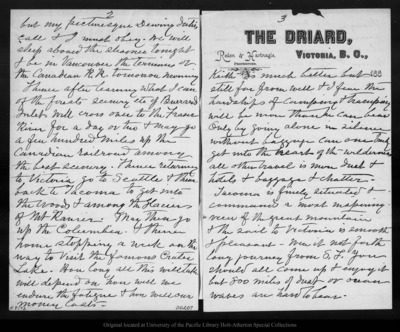 2
but my picturesque Dewing duties
call & I must obey. We will
sleep aboard the steamer tonight
& be in Vancouver the terminus of
the Canadian R.R. tomorrow morning
Thence after learning what I can
of the forest scenery etc of Burrard
Inlet will cross over to the Fraser
River for a day or two & may go
a few hundred miles up the
Canadian railroad among
the best scenery. Thence returning
to Victoria go to Seattle & then
back to Tacoma to get into
the woods & among the glaciers
of Mt Ranier. May then go
up the Columbia & thence
home stopping a week on the
way to visit the famous Crater
Lake. How long all this will take
will depend on how well we
endure the fatigue & how will our
money lasts.
3
THE DRIARD,
Redon & Hartnagle,
PROPRIETORS.
VICTORIA, B. C.,
188
Keith is much better but
still far from well & I fear the
hardships of camping & tramping
will be more than he can bear
Only by going alone in silence
without baggage can one truly
get into the heart of the wilderness
all other travel is mere dust &
hotels & baggage & chatter.
Tacoma is finely situated &
commands a most inspiring
view of the great mountain
& the sail to Victoria is smooth
& pleasant. Were it not for the
long journey from S.F. you
should all come up & enjoy it
but 800 miles of dust or ocean
waves are hard to bear.
Original located at University of the Pacific Library Holt-Atherton Special Collections